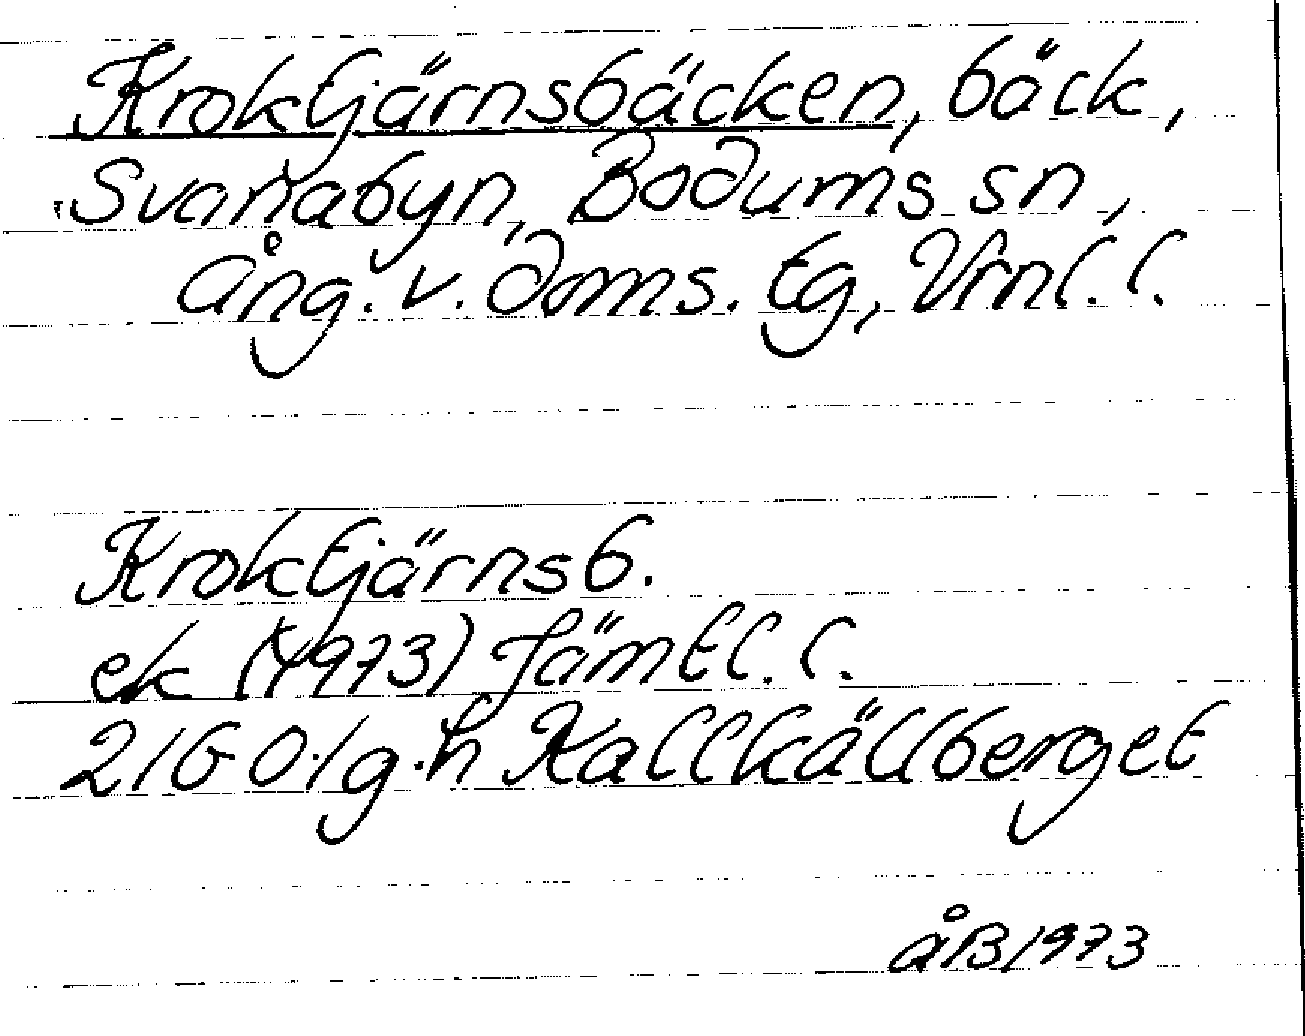 Kroktjärnsbäcken, bäck,
Svanabyn, Bodums sn,
Ång. v. doms. tg, Vrnl. l.
Kroktjärnsb.
ek (1973) Jämtl. l.
21G 0-1 g-h Kallkällberget
ÅB 1973